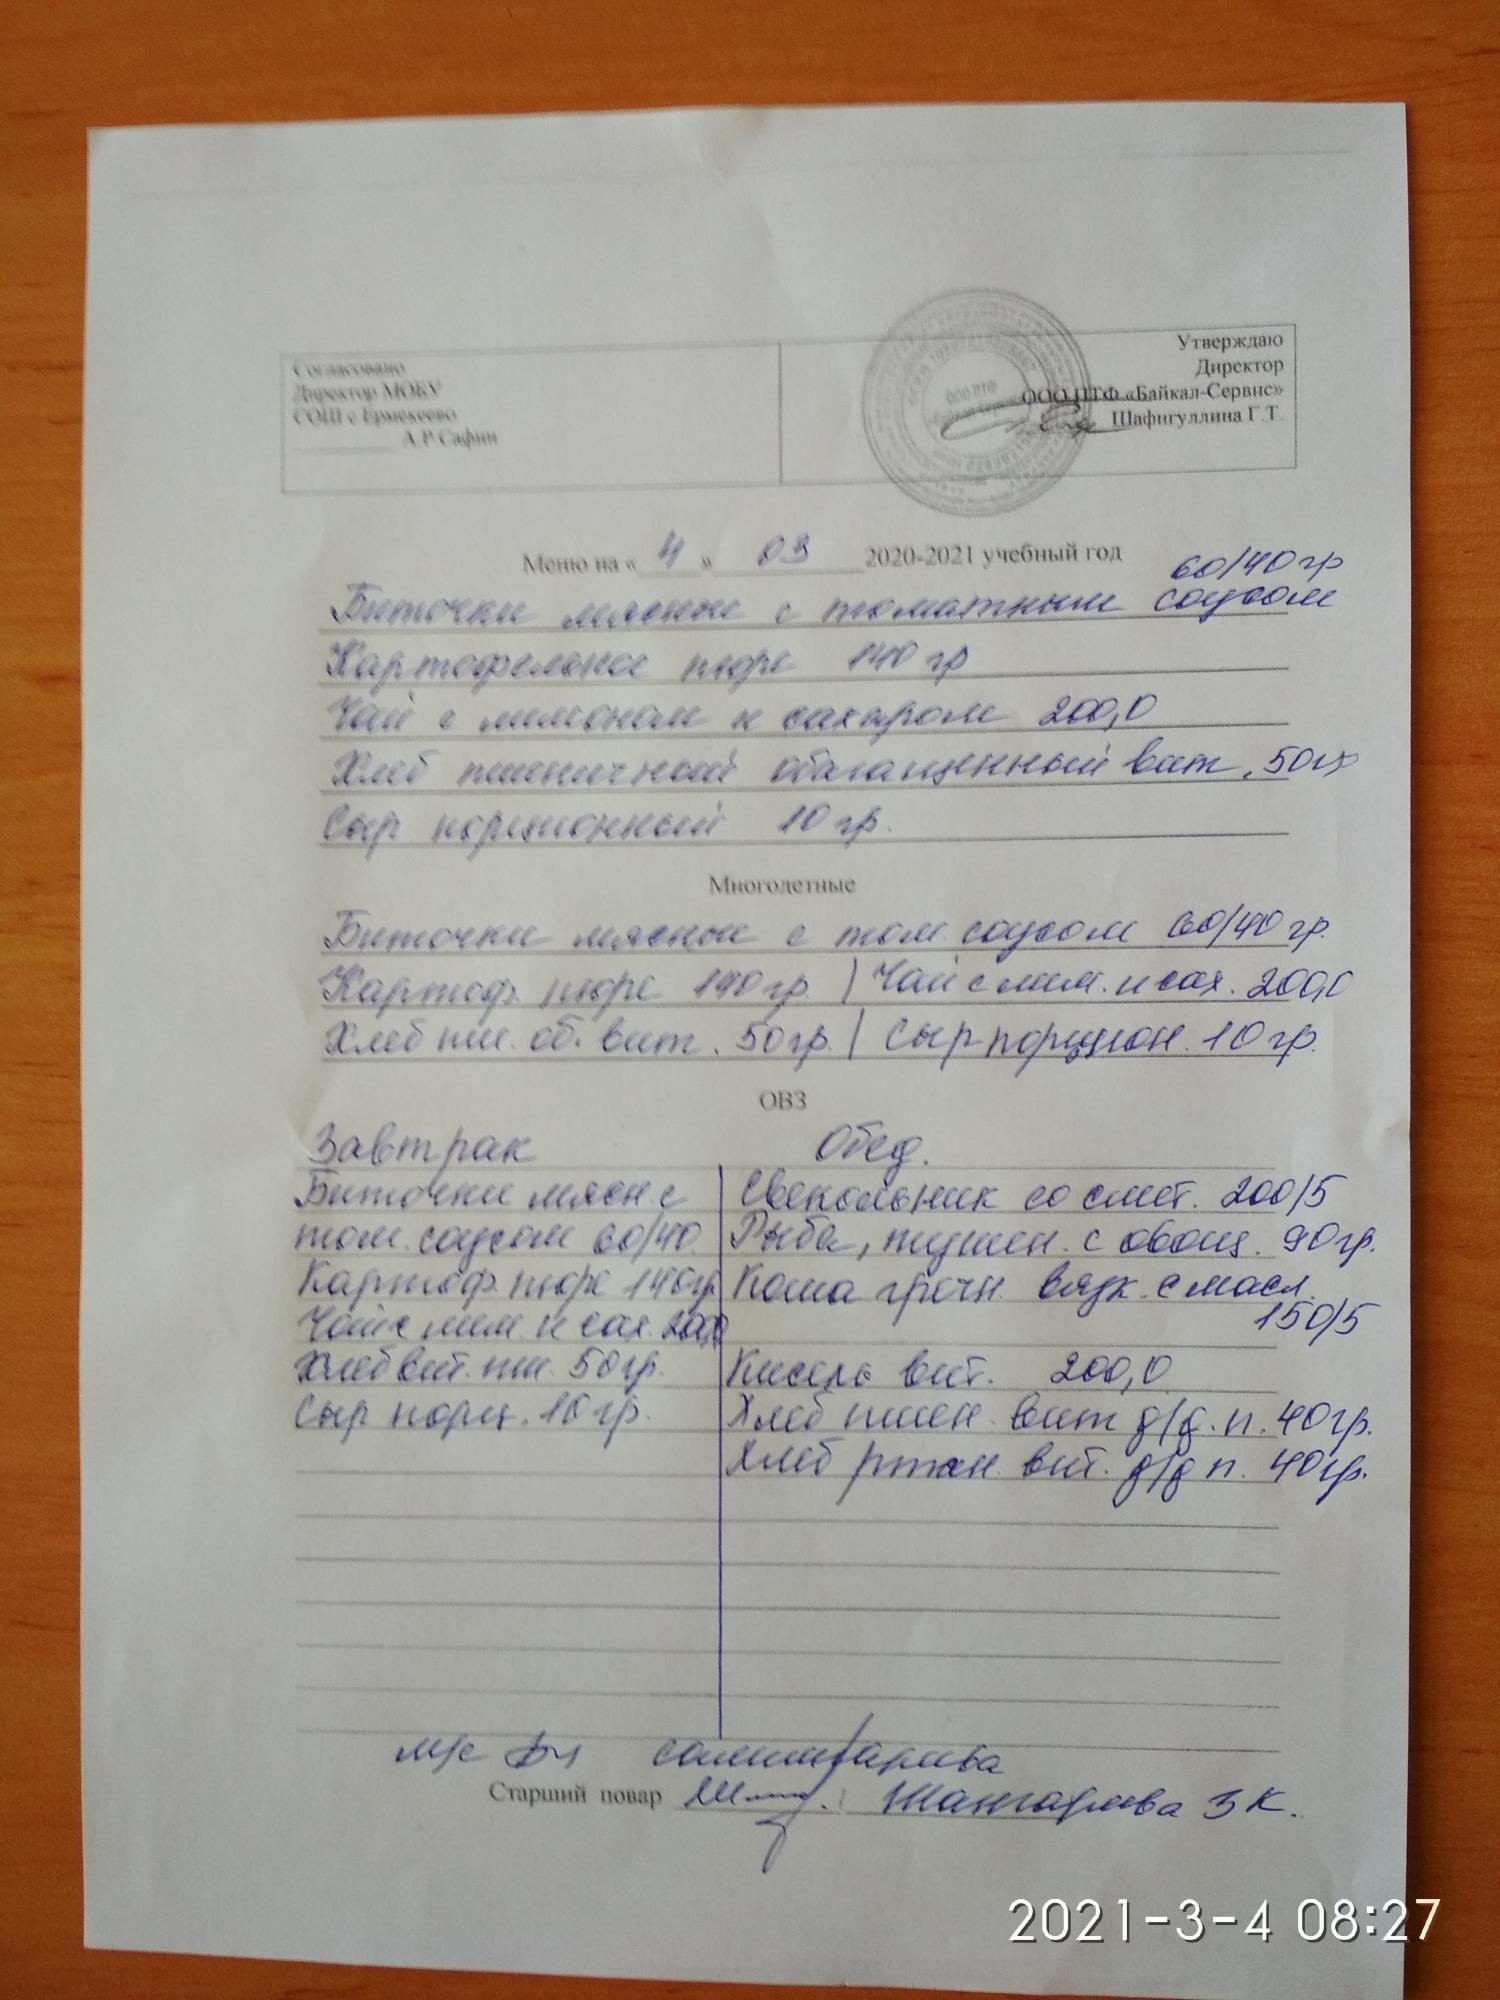 Согласовано
Директор МОБУ
СОШ с Ермекеево
____________ А.Р Сафин
Утверждаю
Директор
ООО ПТФ «Байкал-Сервис»
Шафигуллина Г.Т.
ООО ПТФ
Меню на « 4 » 03 2020-2021 учебный год
60/40 гр
Биточки мясные с томатным соусом
Картофельное пюре 140 гр
Чай с лимоном и сахаром 200,0
Хлеб пшеничный обогащенный вит. 50гр
Сыр порционный 10 гр.
Многодетные
Биточки мясные с том. соусом 60/40 гр.
Картоф. пюре 140 гр. | Чай с лим. и сах. 200,0
Хлеб пш. об. вит. 50 гр. | Сыр порцион. 10 гр.
ОВЗ
Завтрак Обед.
Биточки мясн. с Свекольник со смет. 200/5
том. соусом 60/40 Рыба, тушен. с овощ. 90гр.
Картоф. пюре 140гр Каша гречн. вязк. с масл.
150/5
Чай с лим. и сах. 200,0
Хлеб вит. пш. 50 гр. Кисель вит. 200,0
Сыр порц. 10 гр. Хлеб пшен. вит д/д. п. 40гр.
Хлеб ржан. вит. д/д п. 40гр.
м/с
Старший повар Шангареева З К.
2021-3-4 08:27